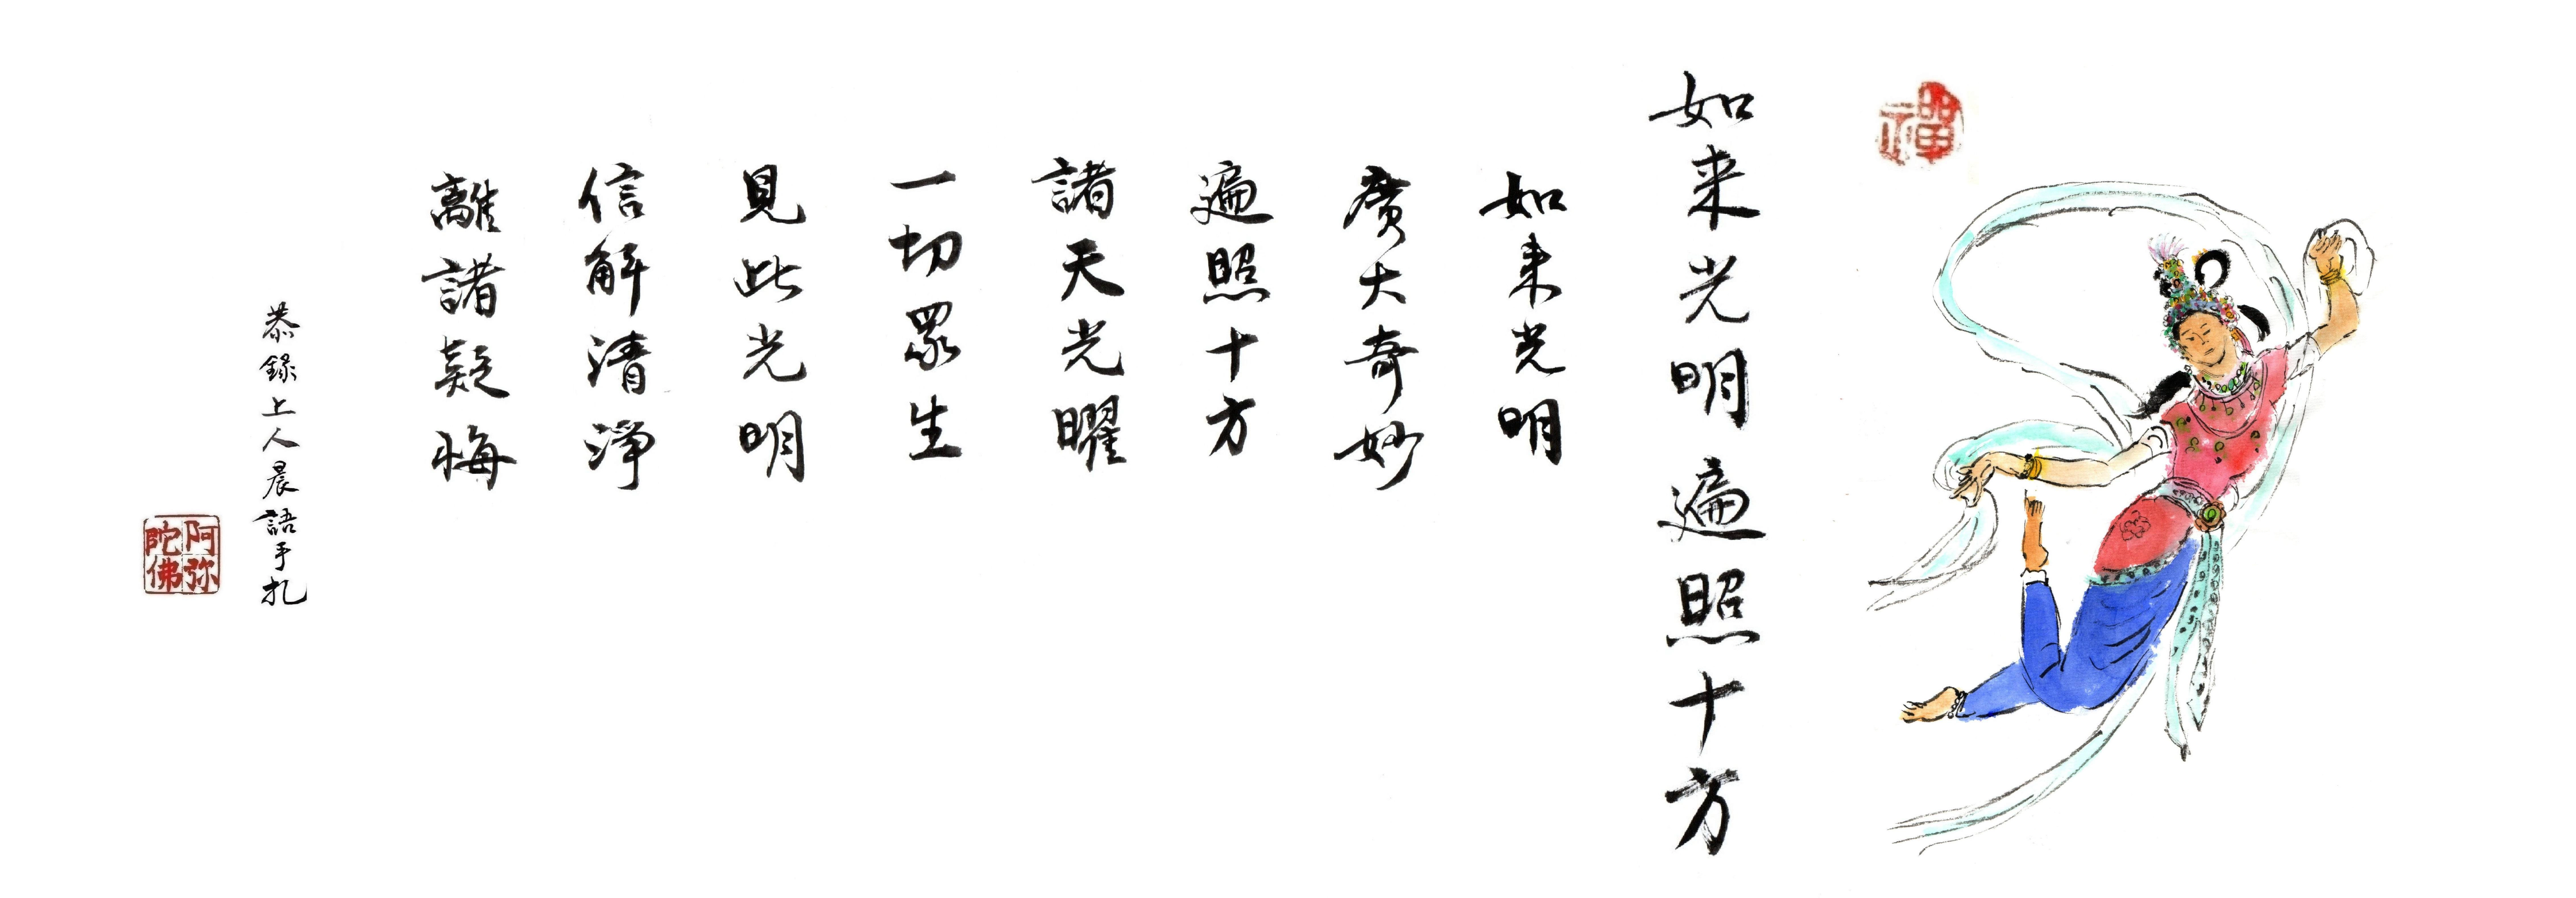 禪
如来光明遍照十方
如来光明
廣大奇妙
遍照十方
諸天光曜
一切眾生
見此光明
信解清淨
離諸疑悔
恭錄上人晨語手扎
阿弥
陀佛